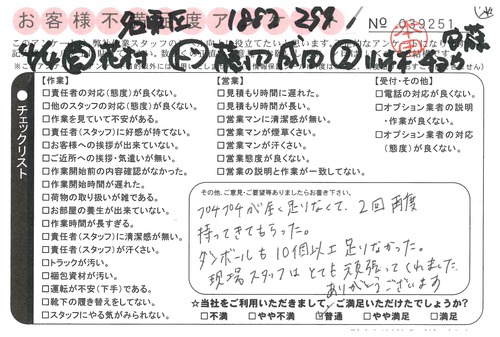 お客様不満度アンケート
No 039251
チェックリスト
【作業】
□責任者の対応(態度)が良くない。
□他のスタッフの対応(態度)が良くない。
□作業を見ていて不安がある。
□責任者(スタッフ)に好感が持てない。
□お客様への挨拶が出来ていない。
□ご近所への挨拶・気遣いが無い。
□作業開始前の内容確認がなかった。
□作業開始時間が遅れた。
□荷物の取り扱いが雑である。
□お部屋の養生が出来ていない。
□作業時間が長すぎる。
□責任者(スタッフ)に清潔感が無い。
□責任者(スタッフ)が汗くさい。
□トラックが汚い。
□梱包資材が汚い。
□運転が不安(下手)である。
□靴下の履き替えをしてない。
□スタッフにやる気がみられない。
【営業】
□見積もり時間に遅れた。
□見積もり時間が長い。
□営業マンに清潔感が無い。
□営業マンが煙草くさい。
□営業マンが汗くさい。
□営業態度が良くない。
□営業の説明と作業が一致してない。
【受付・その他】
□電話の対応が良くない。
□オプション業者の説明
・作業が良くない。
□オプション業者の対応
(態度)が良くない。
その他、ご意見・ご要望等ありましたらお書き下さい。
プチプチが全く足りなくて、2回再度
持ってきてもらった。
ダンボールも10個以上足りなかった。
現場スタッフはとても頑張ってくれました
ありがとうございます
☆当社をご利用いただきまして、ご満足いただけたでしょうか?
□不満 □やや不満 □普通 □やや満足 □満足